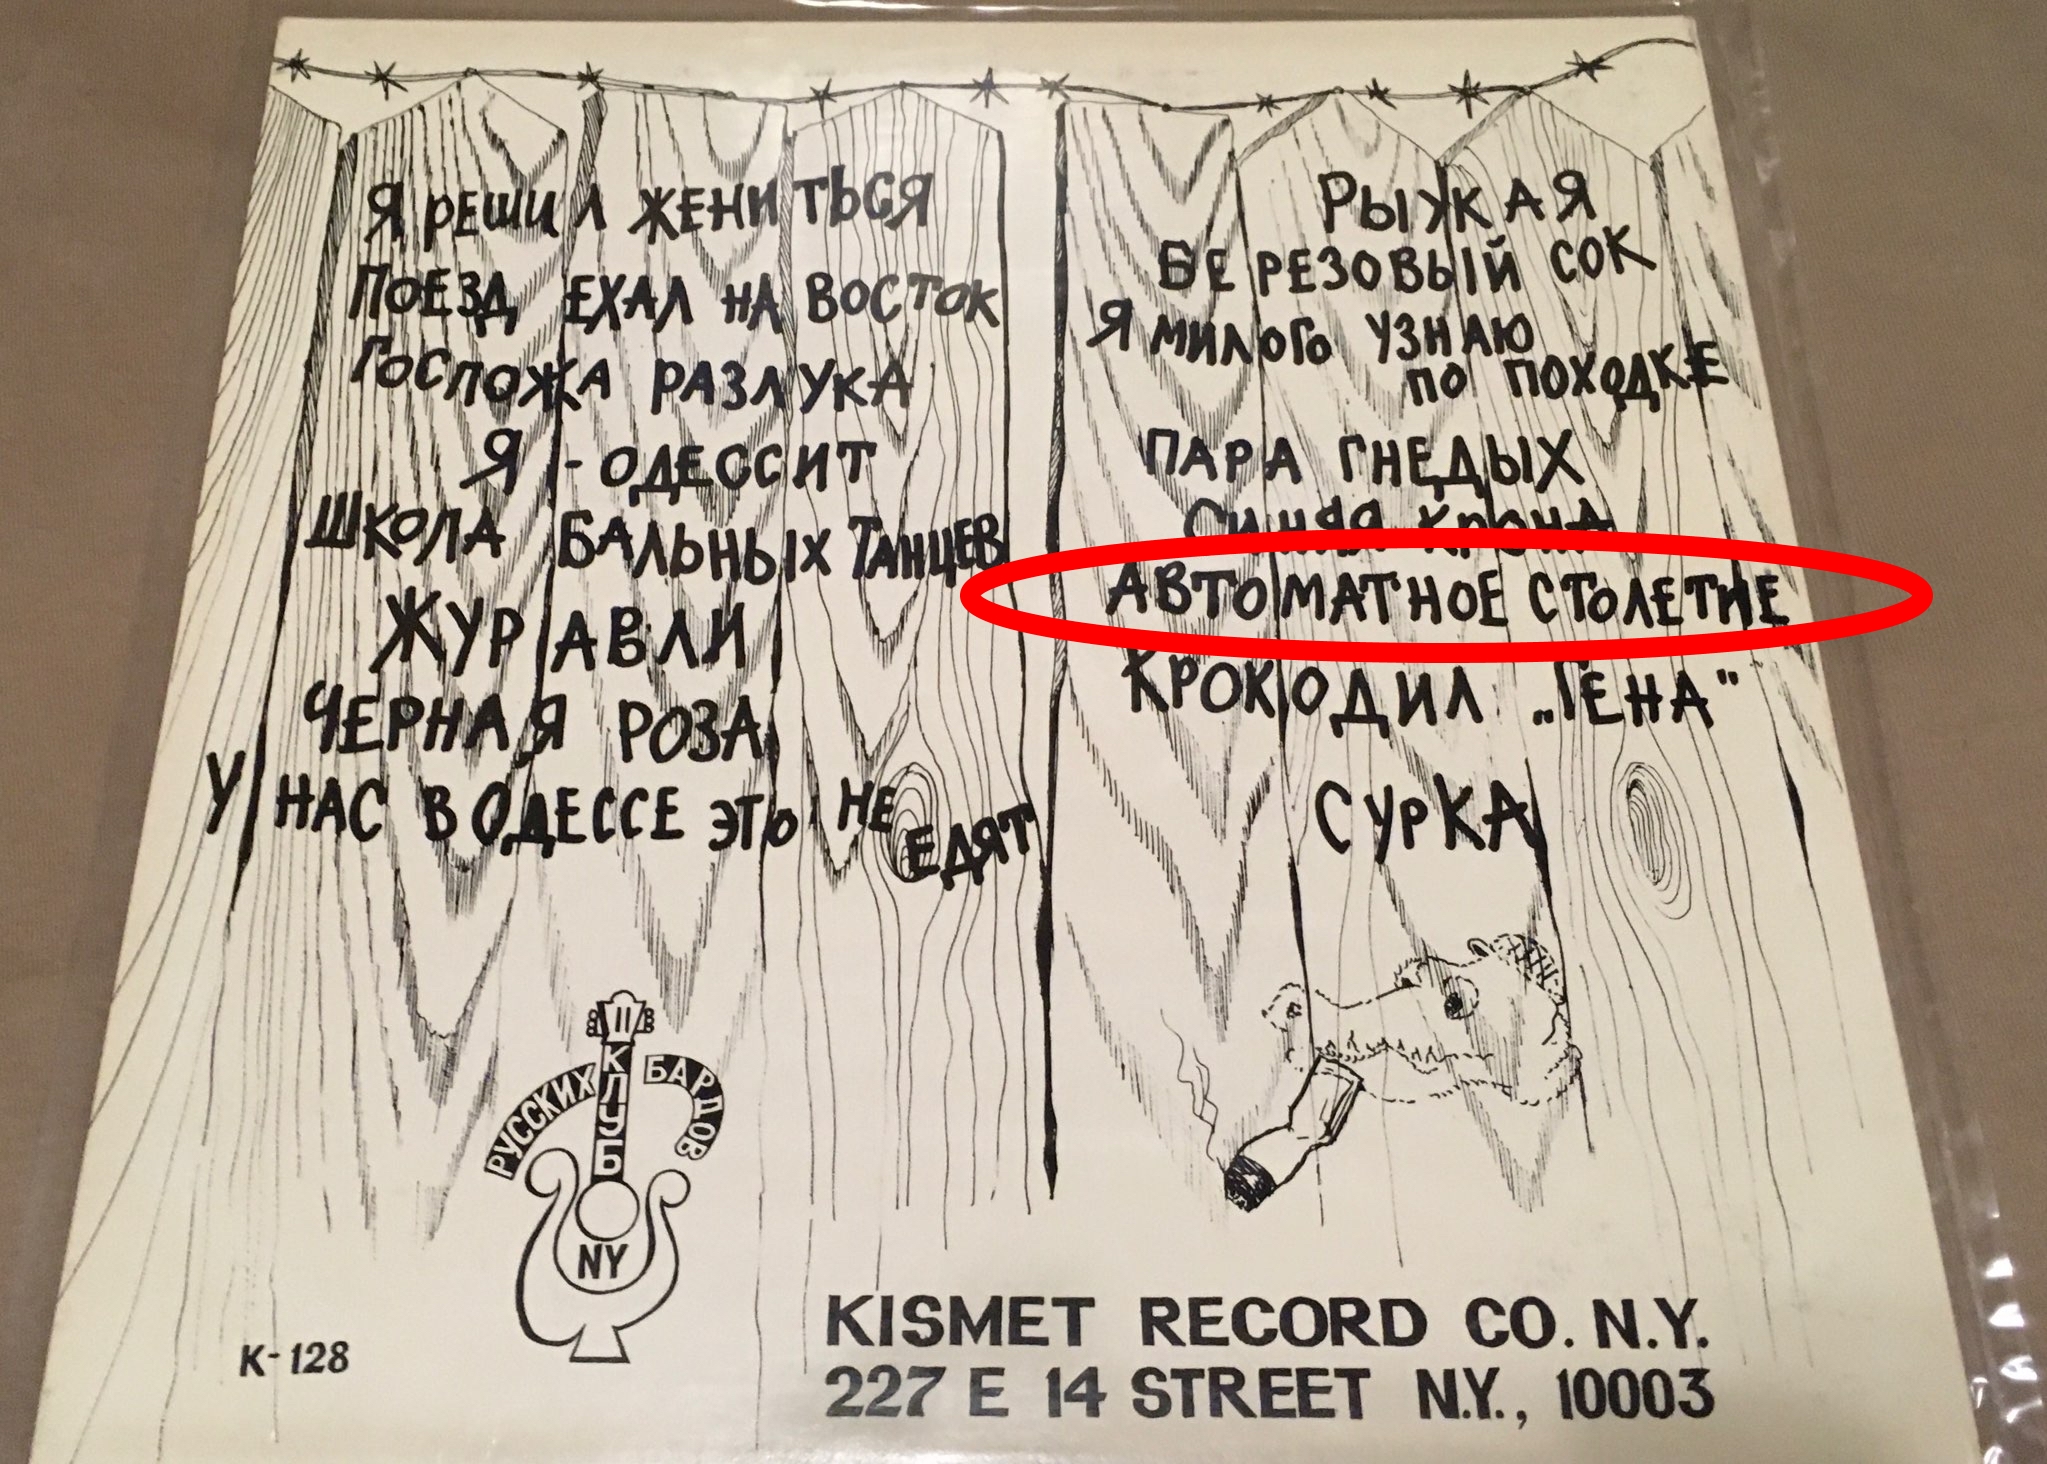 Я РЕШИЛ ЖЕНИТЬСЯ
ПОЕЗД ЕХАЛ НА ВОСТОК
ГОСПОЖА РАЗЛУКА
Я - ОДЕССИТ
ШКОЛА БАЛЬНЫХ ТАНЦЕВ
ЖУРАВЛИ
ЧЕРНАЯ РОЗА
У НАС В ОДЕССЕ ЭТО НЕ
ЕДЯТ
РЫЖАЯ
БЕРЕЗОВЫЙ СОК
Я МИЛОГО УЗНАЮ
ПО ПОХОДКЕ
ПАРА ГНЕДЫХ
СИНЯЯ КРОНА
АВТОМАТНОЕ СТОЛЕТИЕ
КРОКОДИЛ „ГЕНА"
СУРКА
РУССКИХ КЛУБ БАРДОВ
NY
K-128
KISMET RECORD CO. N.Y.
227 E 14 STREET N.Y., 10003